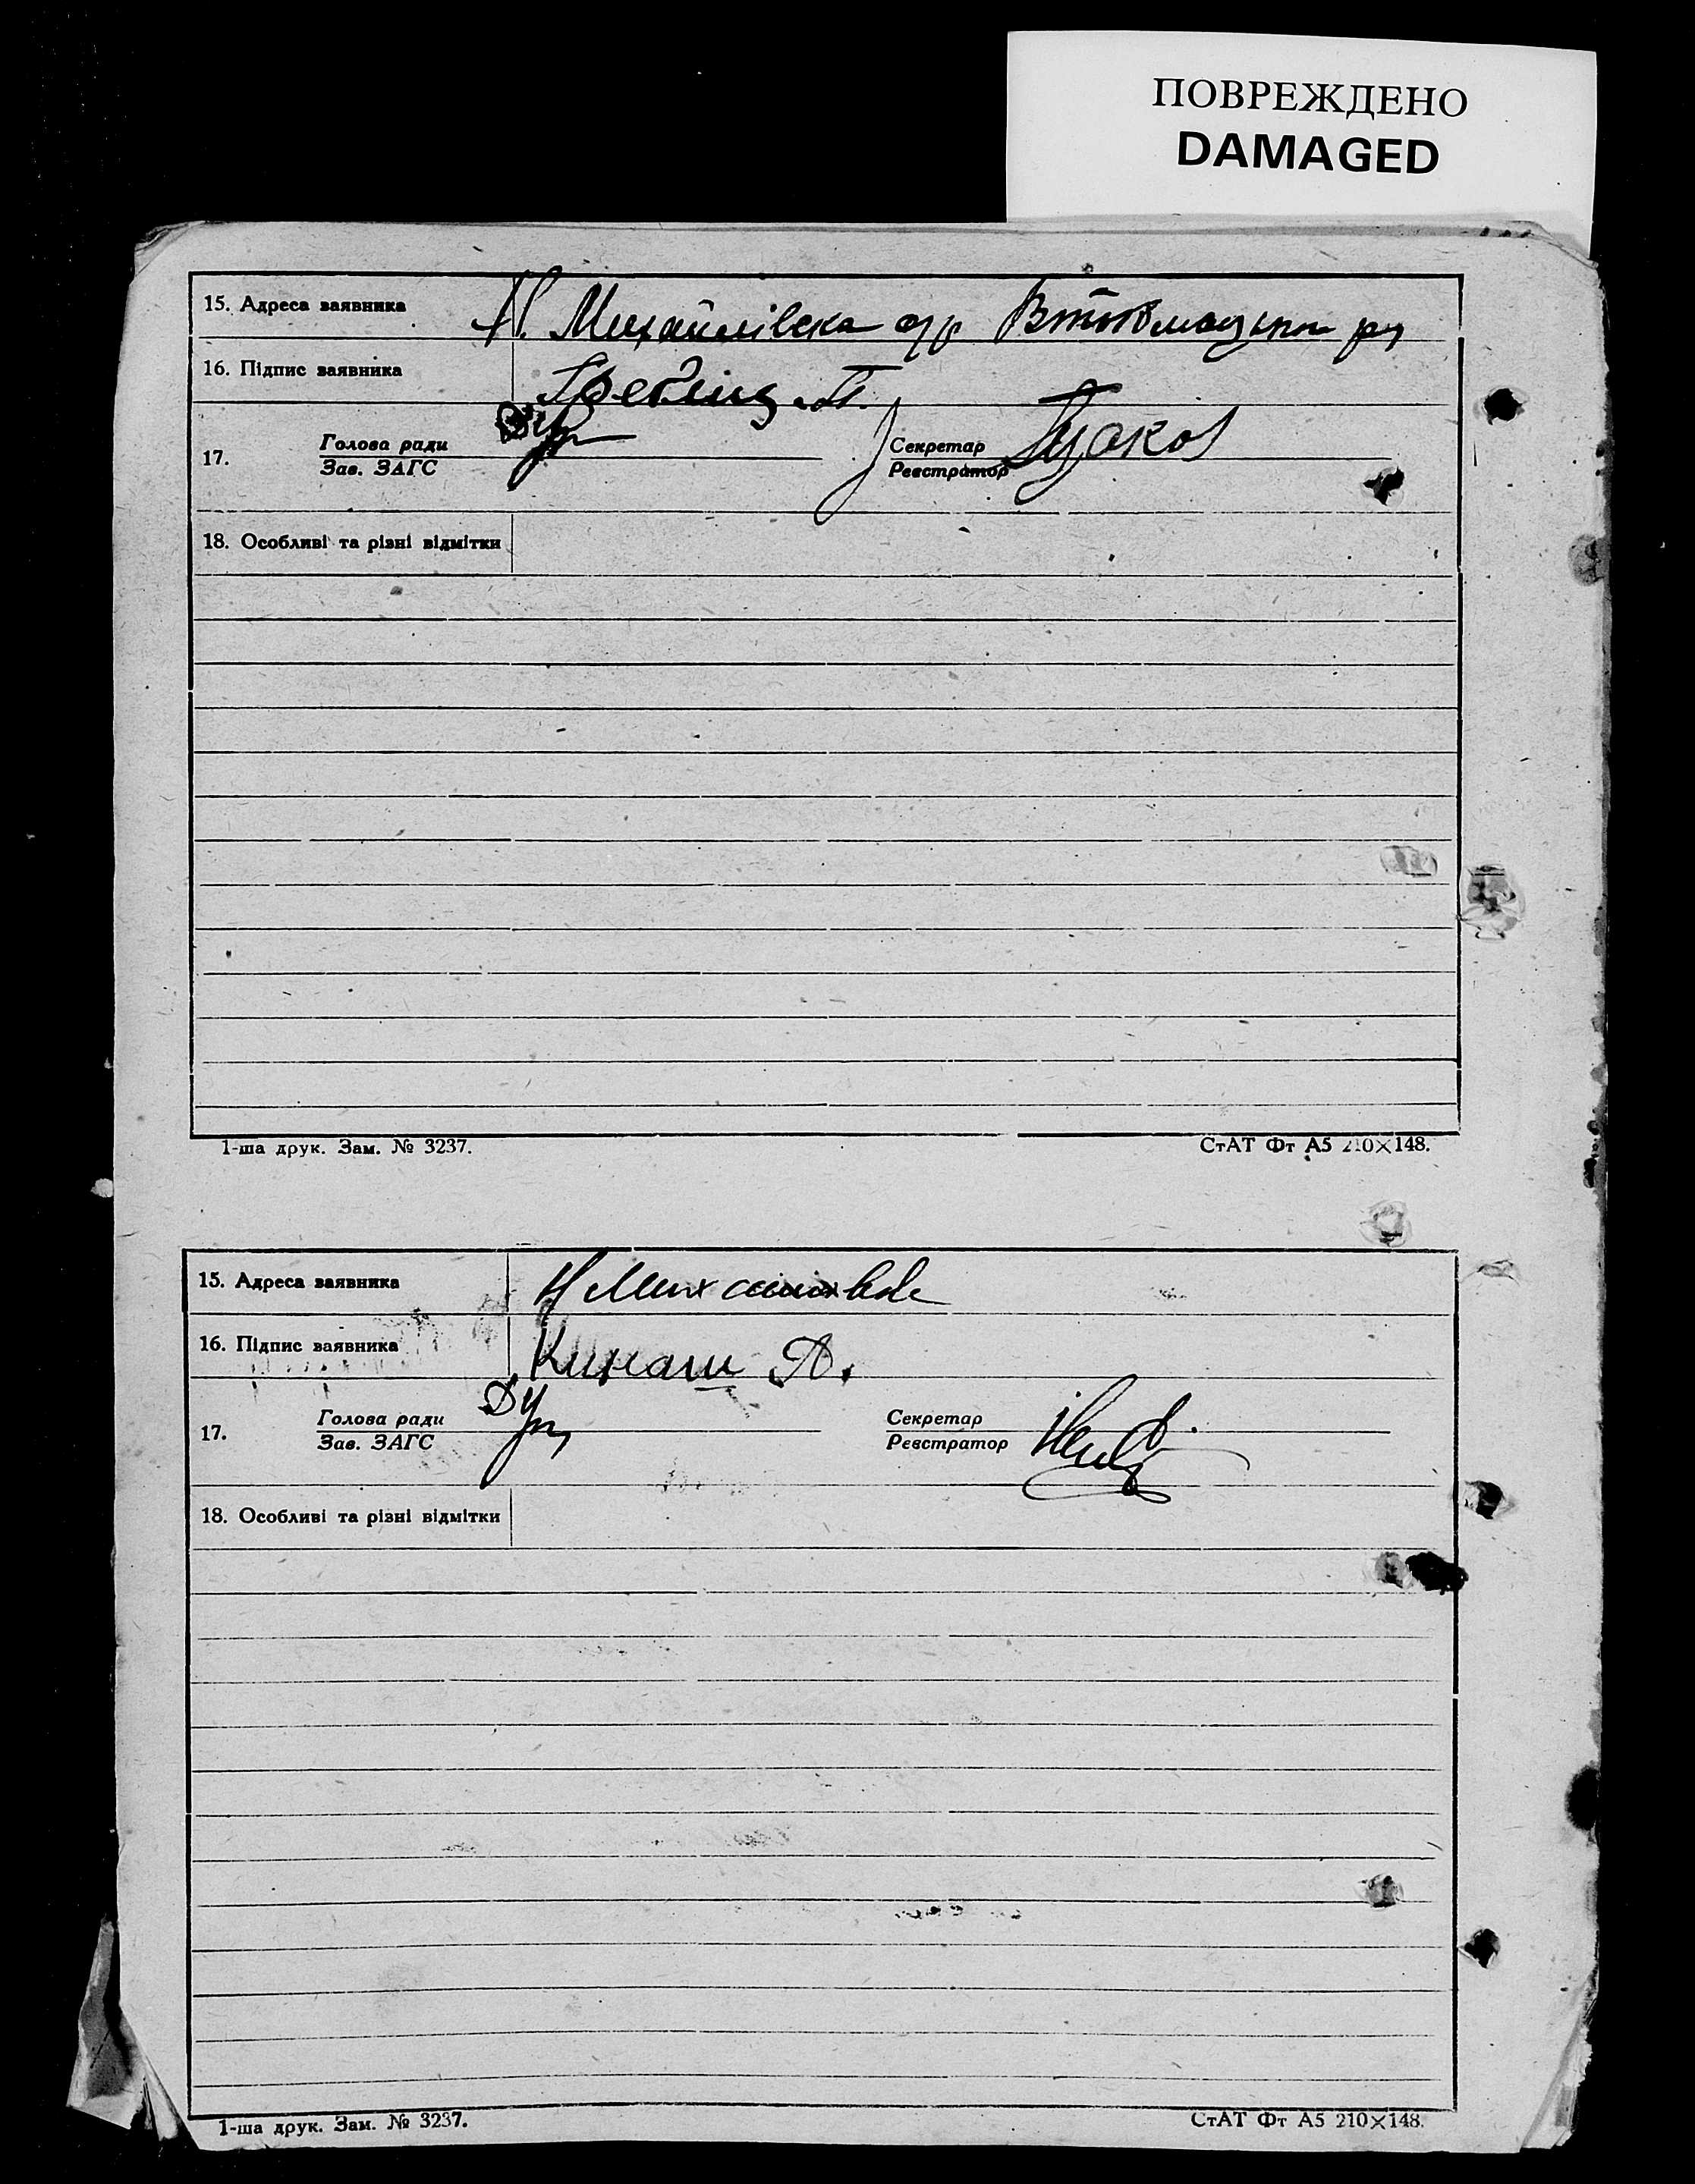 ПОВРЕЖДЕНО
DAMAGED
15. Адреса заявника Н. Михайлівска
16. Підпис заявника
17. Голова ради Секретар
Зав. ЗАГС Реєстратор
18. Особливі та різні відмітки
1-ша друк. Зам. № 3237. СтАТ Фт А5 210×148.
15. Адреса заявника Н
16. Підпис заявника Кинаш П.
17. Голова ради Секретар
Зав. ЗАГС Реєстратор
18. Особливі та різні відмітки
1-ша друк. Зам. № 3237. СтАТ Фт А5 210×148.